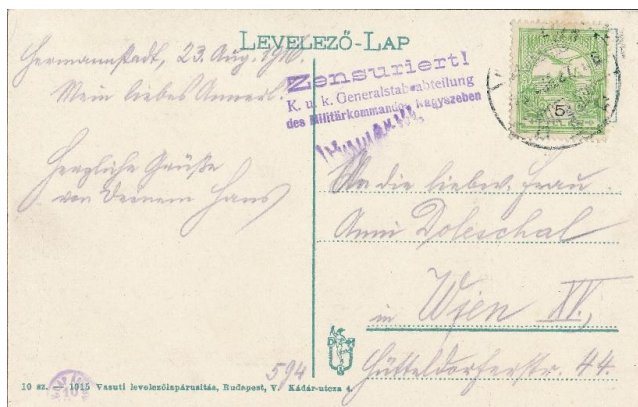 LEVELEZŐ-LAP
Hermannstadt, 23. Aug. 1916.
Mein liebes Annerl.
Herzliche Grüße
von Deinem Hans
Zensuriert!
K. u. k. Generalstabsabteilung
des Militärkommandos Nagyszeben
5
An die liebw. Frau
Anni Doleschal
in Wien XV,
Hütteldorferstr. 44.
594
10 sz. — 1915 Vasuti levelezőlapárusitás, Budapest, V. Kádár-utcza 4.